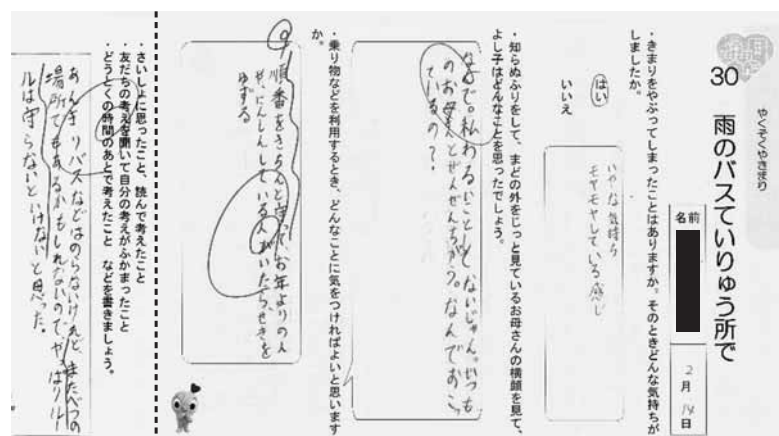 やくそくやきまり
30 雨のバスていりゅう所で
名前
2月14日
・きまりをやぶってしまったことはありますか。そのときどんな気持ちが
しましたか。
はい
いいえ
いやな気持ち
モヤモヤしている感じ
・知らぬふりをして、まどの外をじっと見ているお母さんの横顔を見て、
よし子はどんなことを思ったでしょう。
なんで。私わるいことしてないじゃん。いつも
のお母さんとぜんぜんちがう。なんでおこっ
ているの?
・乗り物などを利用するとき、どんなことに気をつければよいと思います
か。
順番をきちんと守って、お年よりの人
や、にんしんしている人がいたら、せきを
ゆずる
・さいしょに思ったこと、読んで考えたこと
・友だちの考えを聞いて自分の考えがふかまったこと
・どうとくの時間のあとで考えたこと などを書きましょう。
あんまりバスなどはのらないけれど、またべつの
場所でもあるかもしれないので、やっぱりルー
ルは守らないといけないと思った。